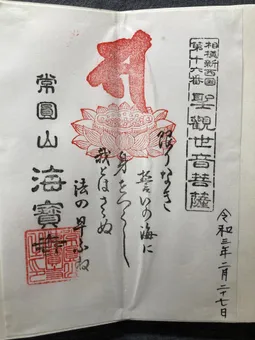 相模新西国
第十六番
聖觀世音菩薩
令和三年二月二十七日
限りなき
誓いの海に
身をつくし
とはさらぬ
法の早ふね
常圓山 海寶寺